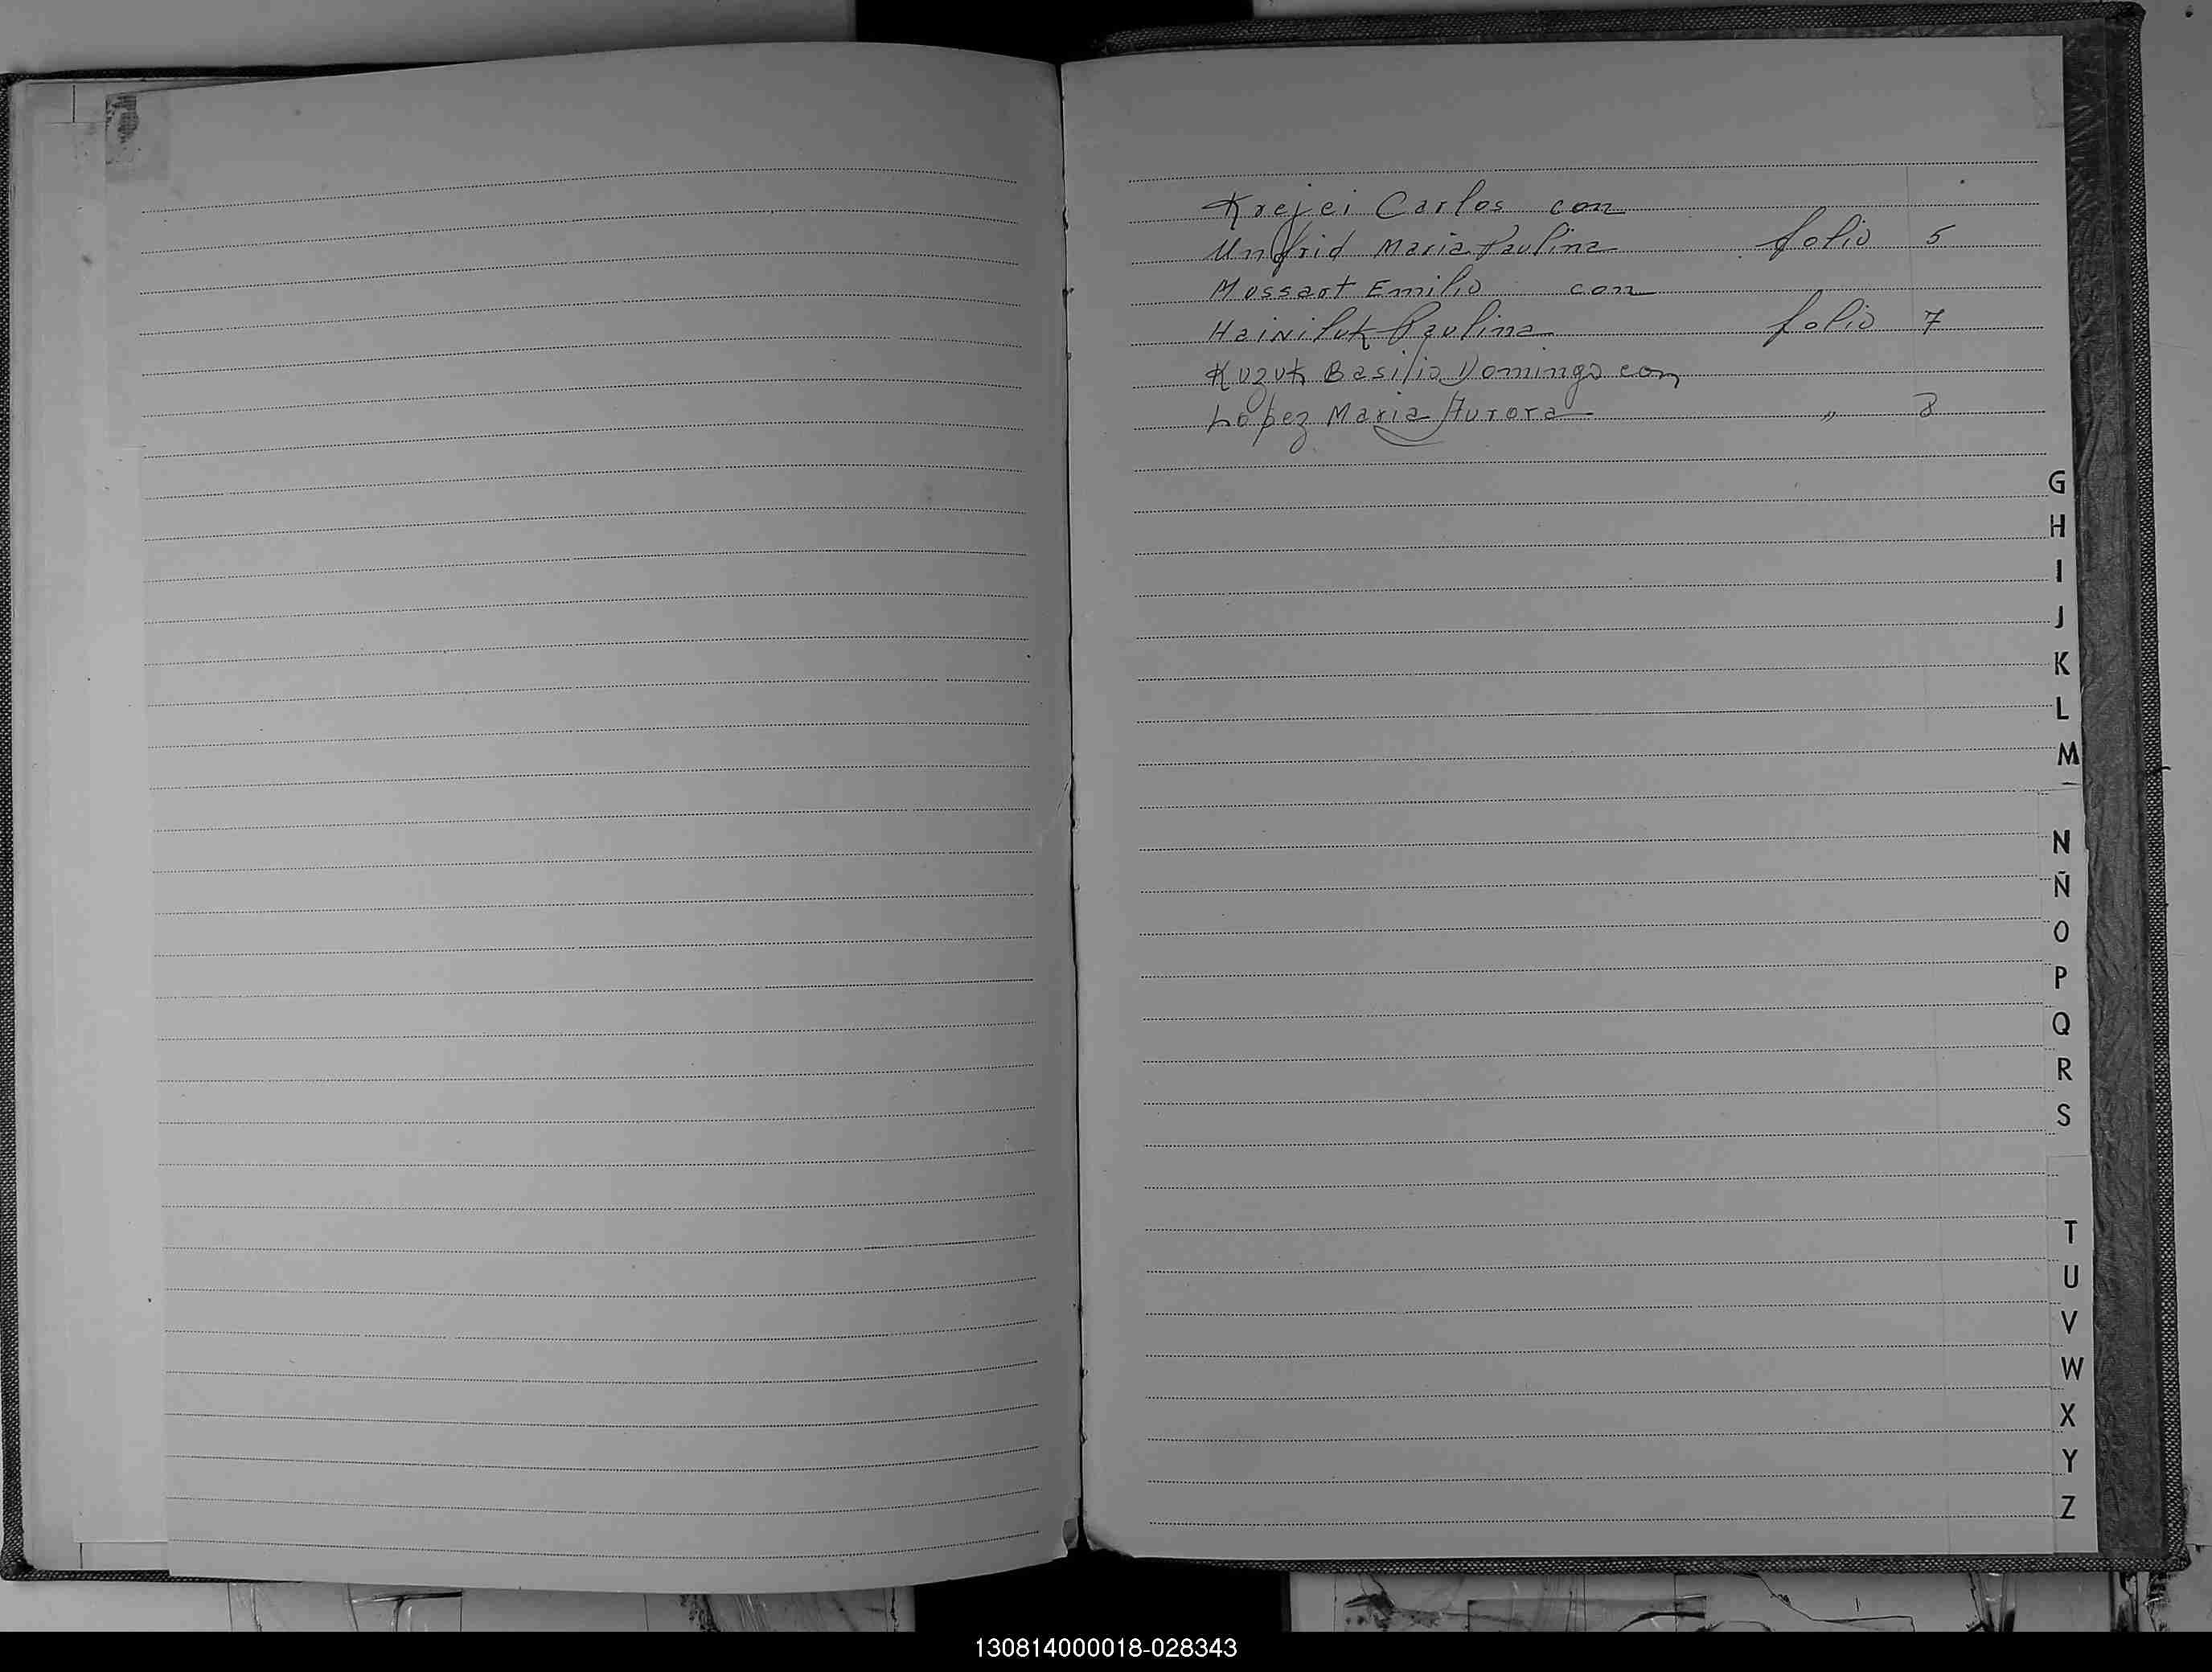 Krejei Carlos con
Unfrid Maria Paulina folio 5
Mossart Emilio con
Hainiluk Paulina folio 7
Kuzuk Basilio Domingo con
Lopez Maria Aurora " 8
G
H
I
J
K
L
M
N
Ñ
O
P
Q
R
S
T
U
V
W
X
Y
Z
130814000018-028343